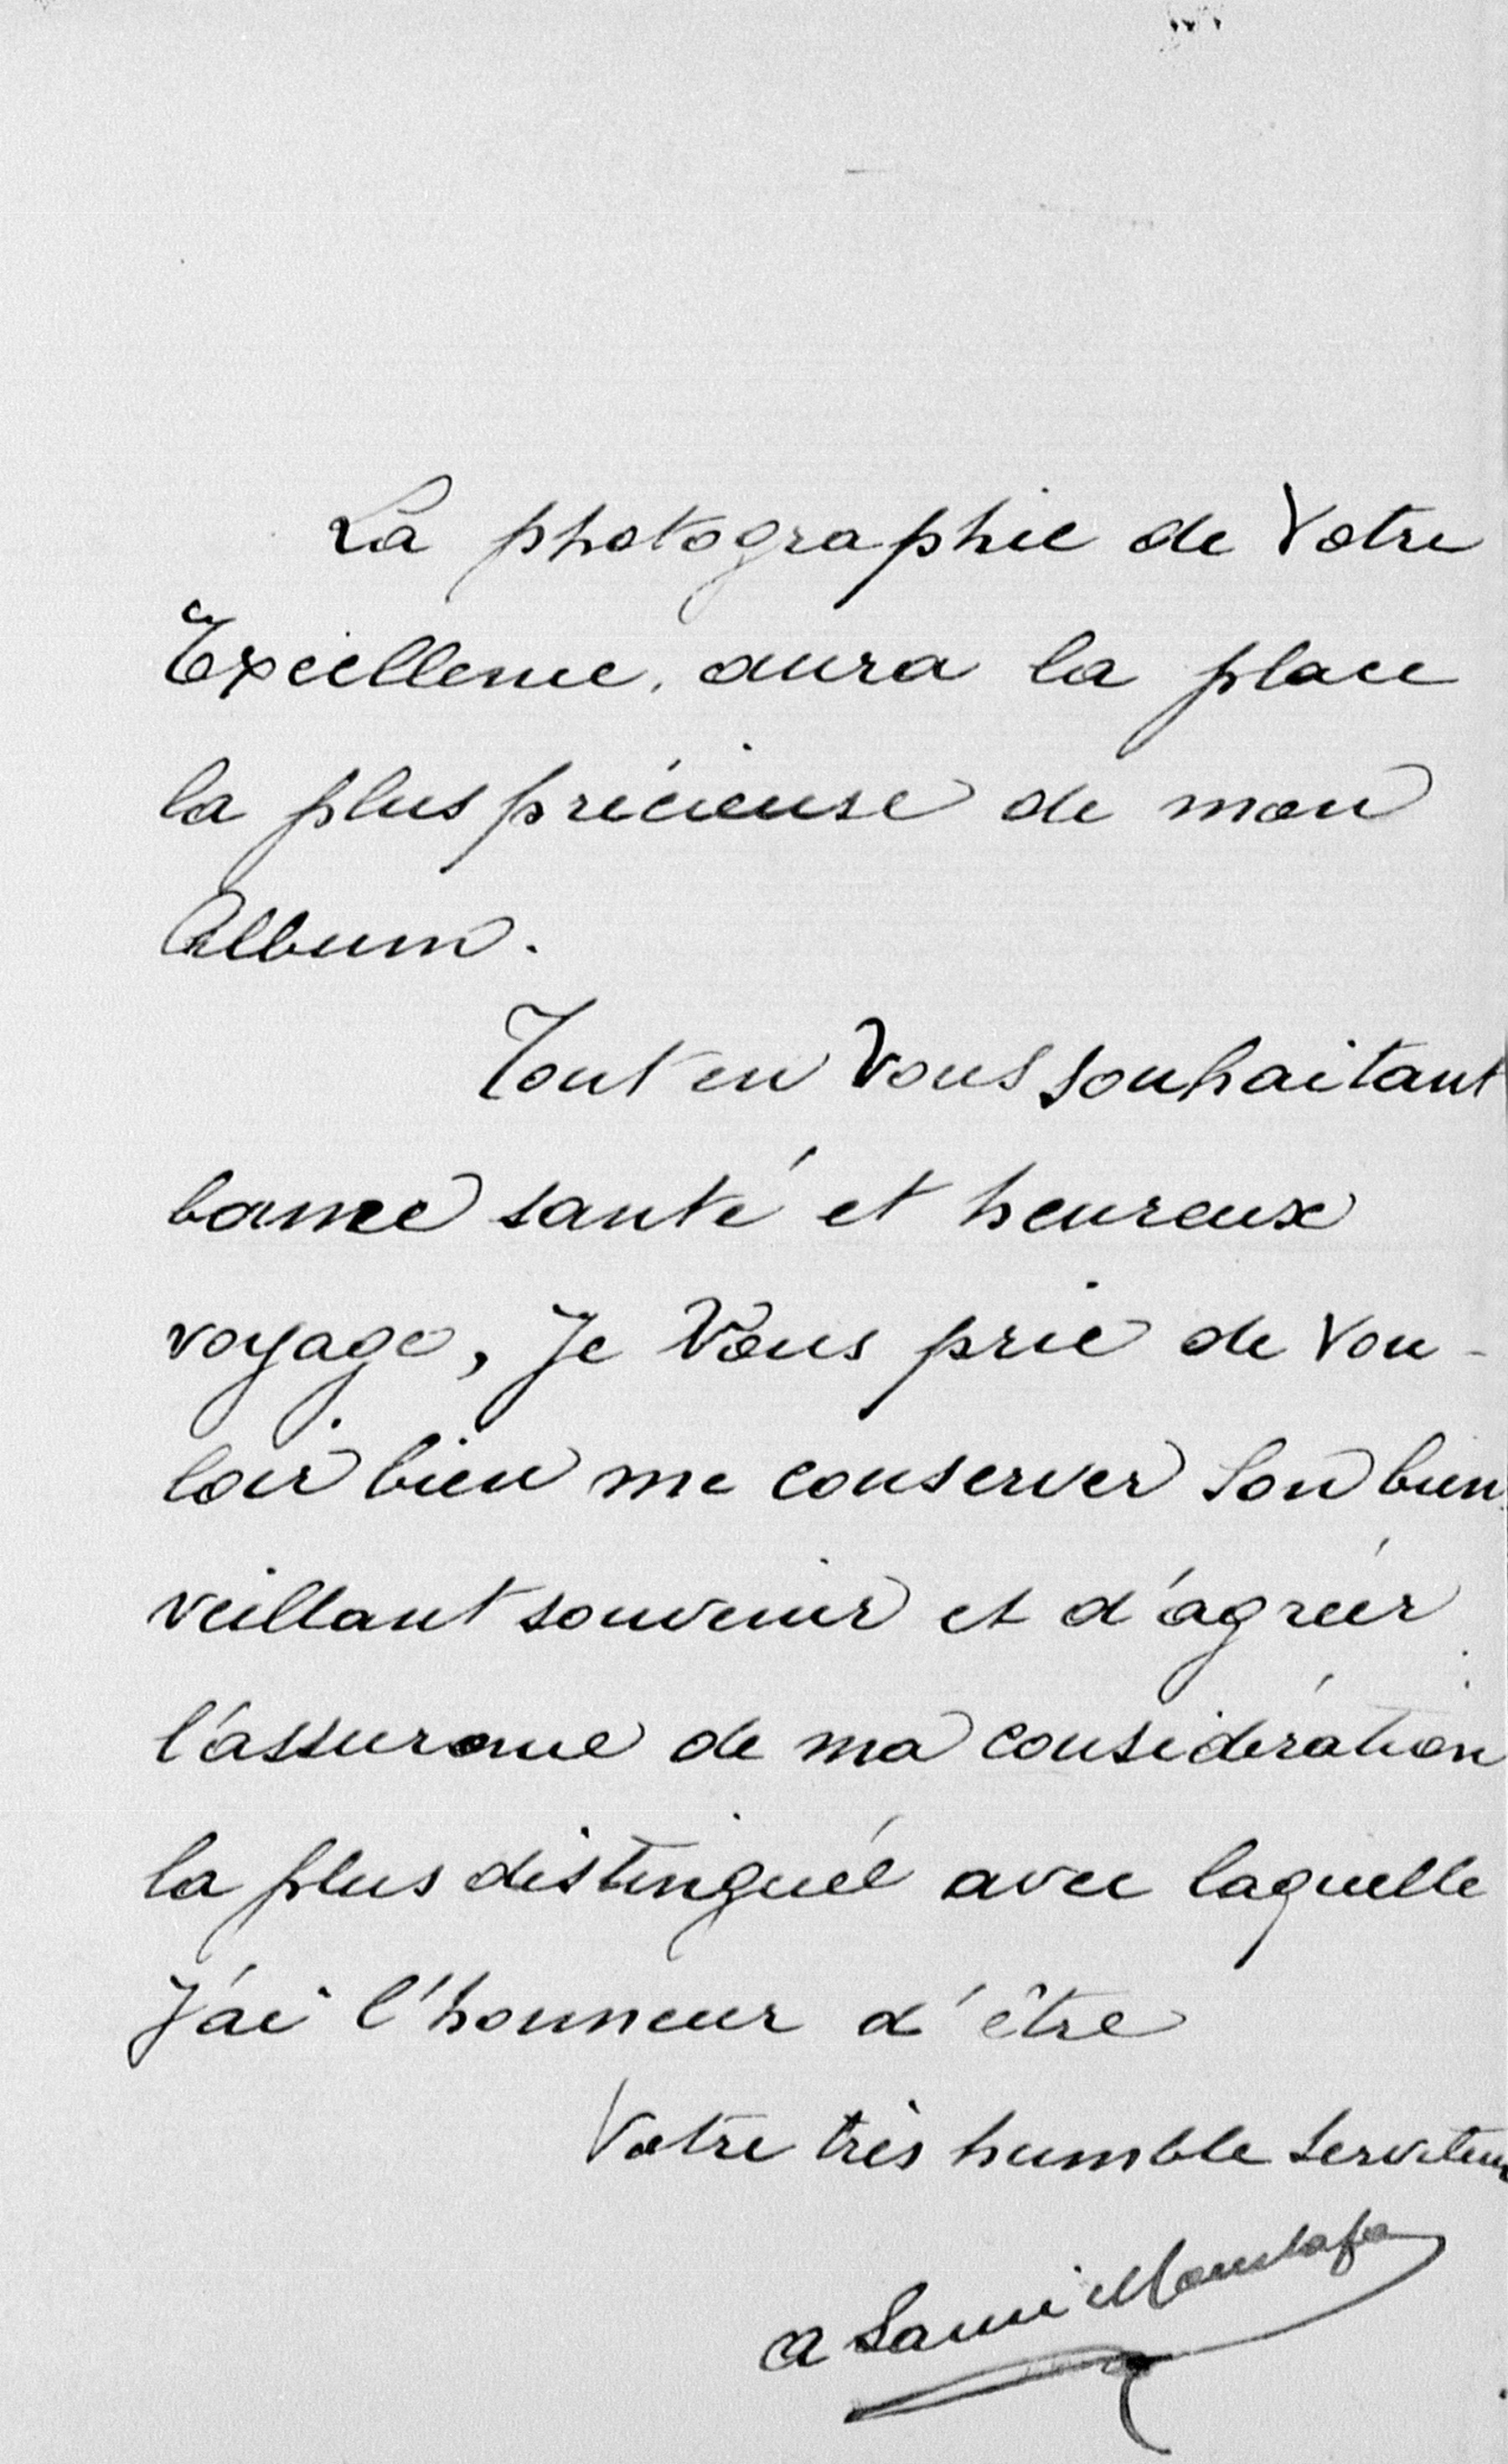 La photographie de Votre
Excellence, aura la place
la plus précieuse de mon
Album.
Tout en Vous souhaitant
bonne santé et heureux
voyage, Je Vous prie de vou-
loir bien me conserver son bien
veillant souvenir et d'agréer
l'assurance de ma considération
la plus distinguée avec laquelle
J'ai l'honneur d'être
Votre très humble serviteur
A Sami Moustafa